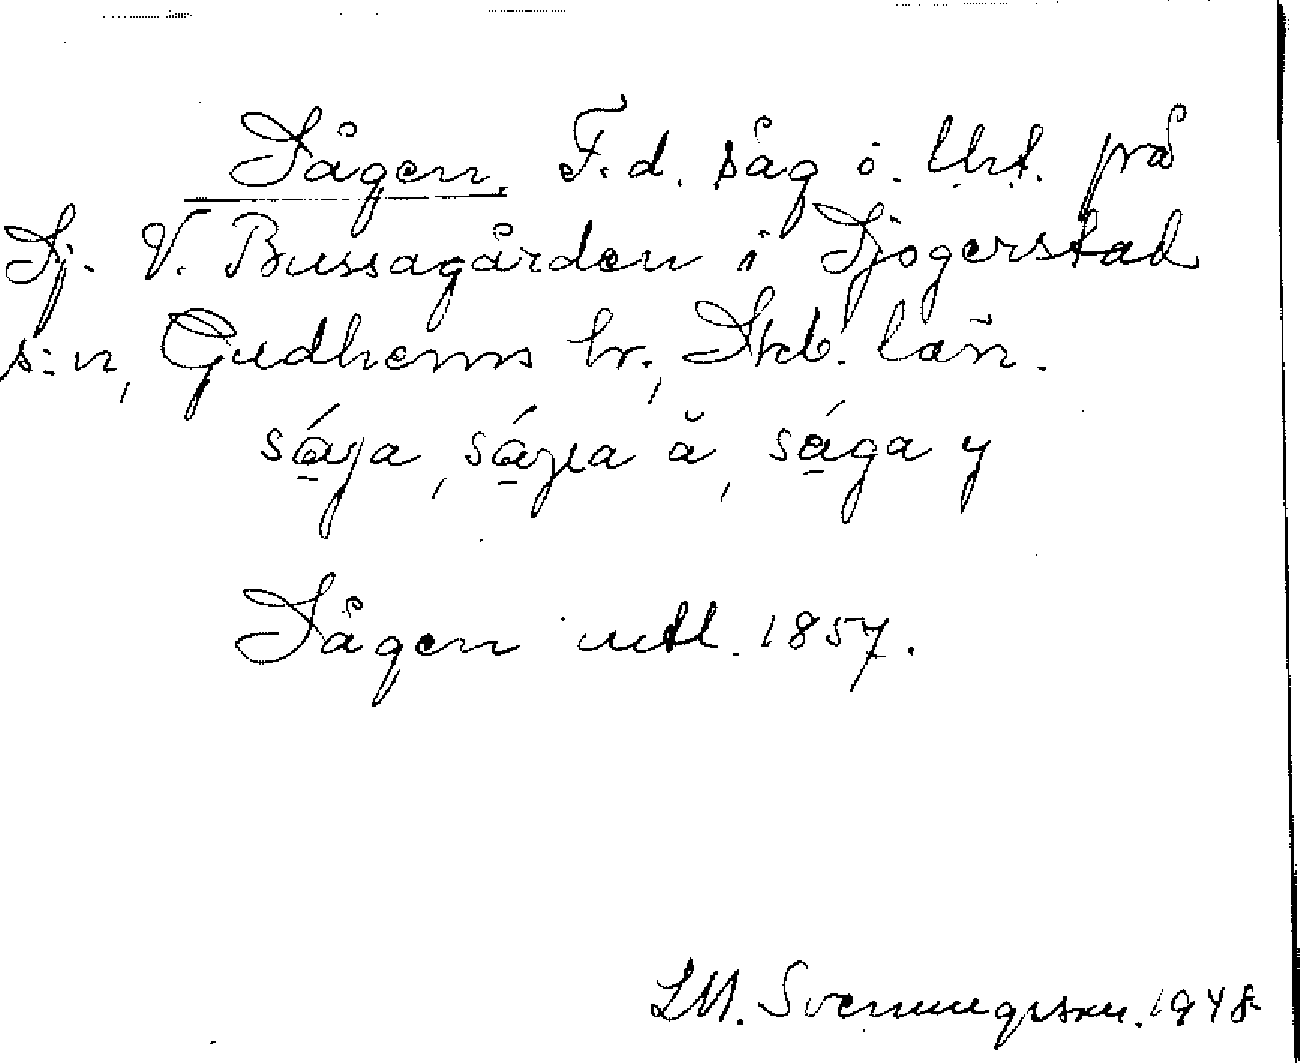 Sågen. F.d. såg o. Urt. på
Sj. V. Bussagården i Sjogerstad
s:n, Gudhems hr., Skb. län.
så̱ja, så̱jla å, så̱ga y
Sågen utl. 1857.
LM. Svenungsson. 1948